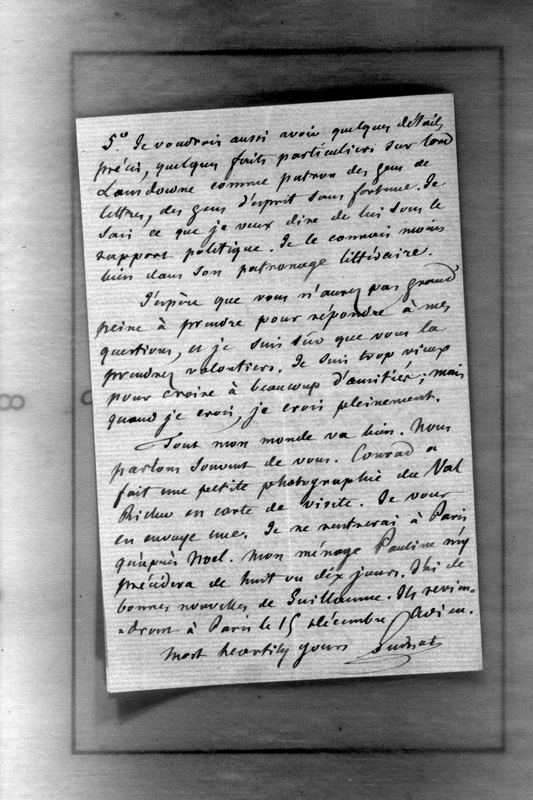 5.º Je voudrais aussi avoir quelques détails
précis, quelques faits particuliers sur lord
Lansdowne comme patron des gens de
lettres, des gens d'esprit sans fortune. Je
sais ce que je veux dire de lui sous le
rapport politique. Je le connais moins
bien dans son patronage littéraire.
J'espère que vous n'aurez pas grand'
peine à prendre pour répondre à mes
questions, et je suis sûr que vous la
prendrez volontiers. Je suis trop vieux
pour croire à beaucoup d'amitiés; mais
quand je crois, je crois pleinement.
Tout mon monde va bien. Nous
parlons souvent de vous. Conrad a
fait une petite photographie du Val
Richer en carte de visite. Je vous
en envoye une. Je ne rentrerai à Paris
qu'après Noel. Mon ménage Pauline my
précédera de huit ou dix jours. J'ai de
bonnes nouvelles de Guillaume. Ils revien=
=dront à Paris le 15 décembre. Adieu.
Most heartily yours Guizot